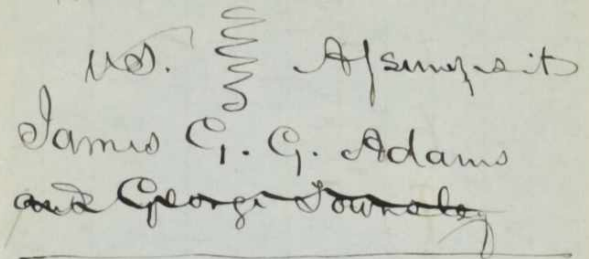 vs. Assumpsit
James G. G. Adams
and George Townsley